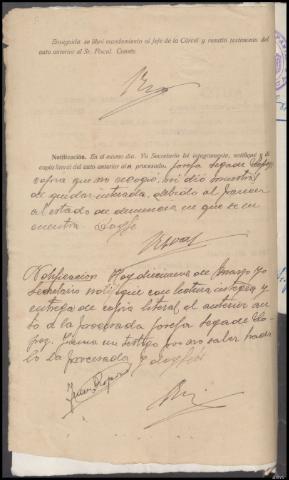 Enseguida se libró mandamiento al Jefe de la Cárcel y remitió testimonio del
auto anterior al Sr. Fiscal. Consta.
Notificación. En el mismo día. Yo Secretario leí íntegramente, notifiqué y di
copia literal del auto anterior al procesado Josefa Segade
copia que no recogió, ni dió muestras
de quedar enterada, debido al parecer
al estado de demencia en que se en
cuentra. Doyfe
Notificacion Hoy de Marzo yo
Secretario notifique con lectura integra y
entrega de copia literal el anterior au
to á la procesada Josefa Segade Lo
pez, firma un testigo por no saber
lo la procesada y doy fé